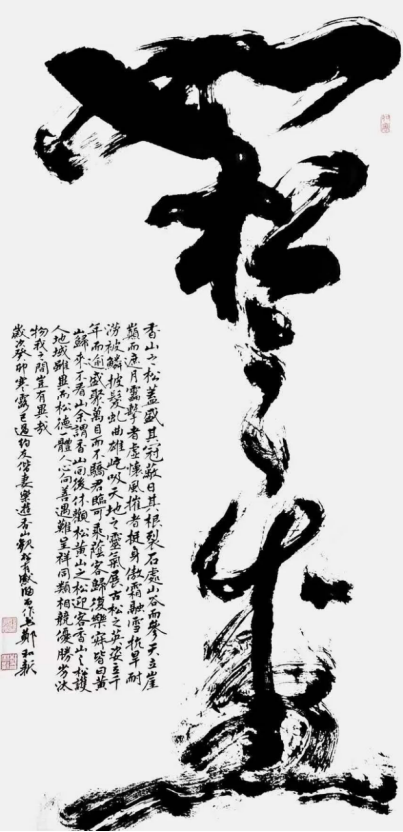 松
香山之松蓋盛其冠蔽日其根裂石處山谷而參天立崖
顛而遮月擊者虛懷風摧者挺身傲霜融雪抗旱耐
澇被鱗披髮虬曲雄屹吸天地之靈氣展古松之英姿立千
年而逾盛聚萬目而不驕君臨可乘蔭客歸復樂寐皆曰黃
山歸來不看山余謂香山回後休觀松黃山之松迎客香山之松護
人地域雖異而松德一體人心向善遇難呈祥同類相競優勝劣汰
物我之間豈有異哉
歲次癸卯寒露已過約友偕妻樂遊香山觀松有感而作 鄭和新